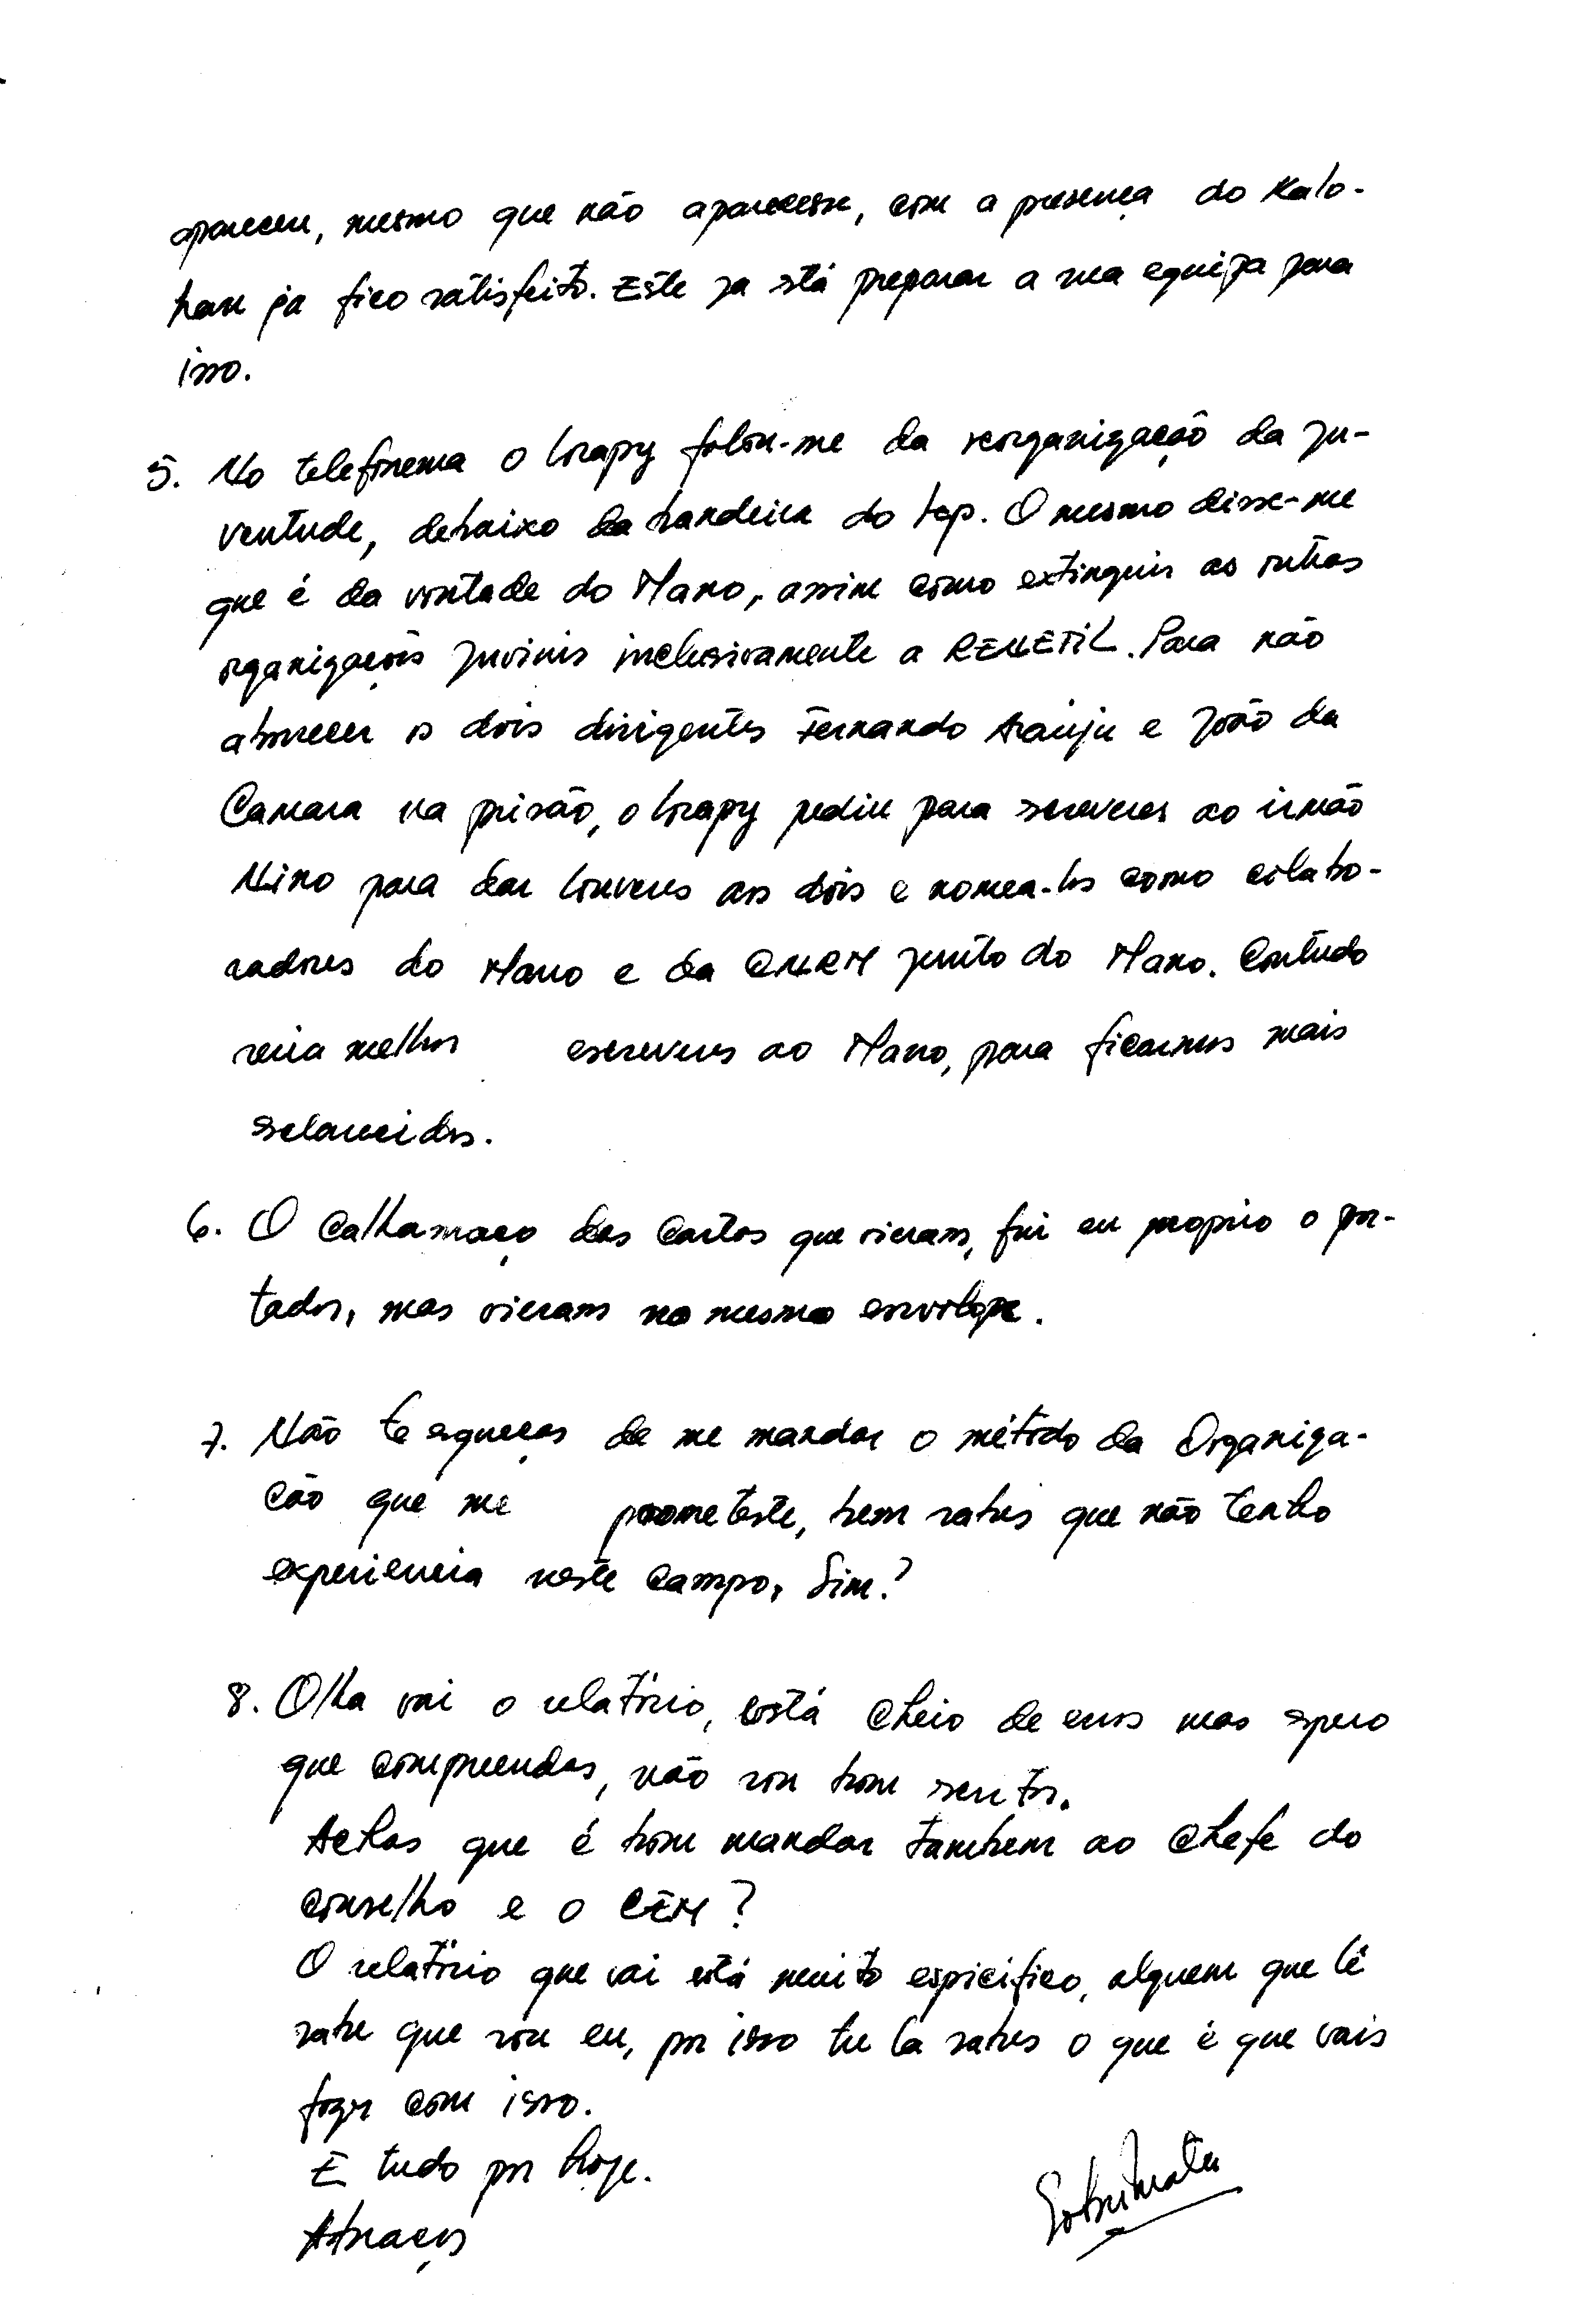 apareceu, mesmo que não aparecesse, com a presença do Kalo-
han ja fico satisfeito. Este ja stá preparar a sua equipa para
isso.
5. No telefonema o Lorapy falou-me da reorganização da ju-
ventude, debaixo da bandeira do Lep. O mesmo disse-me
que é da vontade do Mano, assim como extinguir as outras
organizaçois juvinis inclusivamente a RENETIL. Para não
aborecer os dois dirigentes Fernando Araúju e João da
Camara na prisão, o Lorapy pediu para screveres ao irmão
Nino para dar louveres aos dois e nomea-los como colabo-
radores do Mano e da CNRM junto do Mano. Contudo
seria melhor escreveres ao Mano, para ficarmos mais
sclarecidos.
6. O Calhamaço das Cartas que vieram, fui eu proprio o por-
tador, mas vieram no mesmo envolope.
7. Não te esqueças de me mandar o método da Organiza-
ção que me prometeste, bem sabes que não tenho
experiencia neste campo, Sim?
8. Olha vai o relatório, está cheio de erros mas spero
que compreendas, não sou bom scritor.
Achas que é bom mandar tambem ao Chefe do
Conselho e o CEM?
O relatório que vai está muito espicífico, alguem que lê
sabe que sou eu, por isso tu la sabes o que é que vais
fazer com isso.
E tudo por hoje.
Abraços